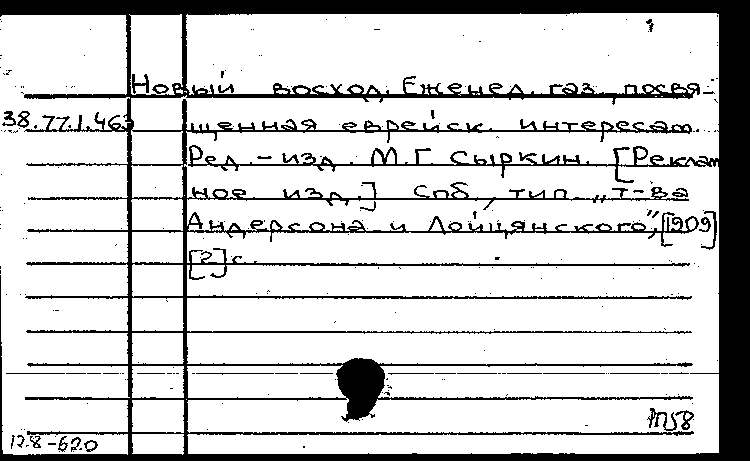 Новый восход. Еженед. газ., посвя-
38.77.1.463 щенная еврейск. интересам.
Ред.-изд. М.Г. Сыркин. [Реклам
ное изд.] Спб, тип. „Т-ва
Андерсона и Лойцянского", [1909]
[2] с.
РП58
12.8-620